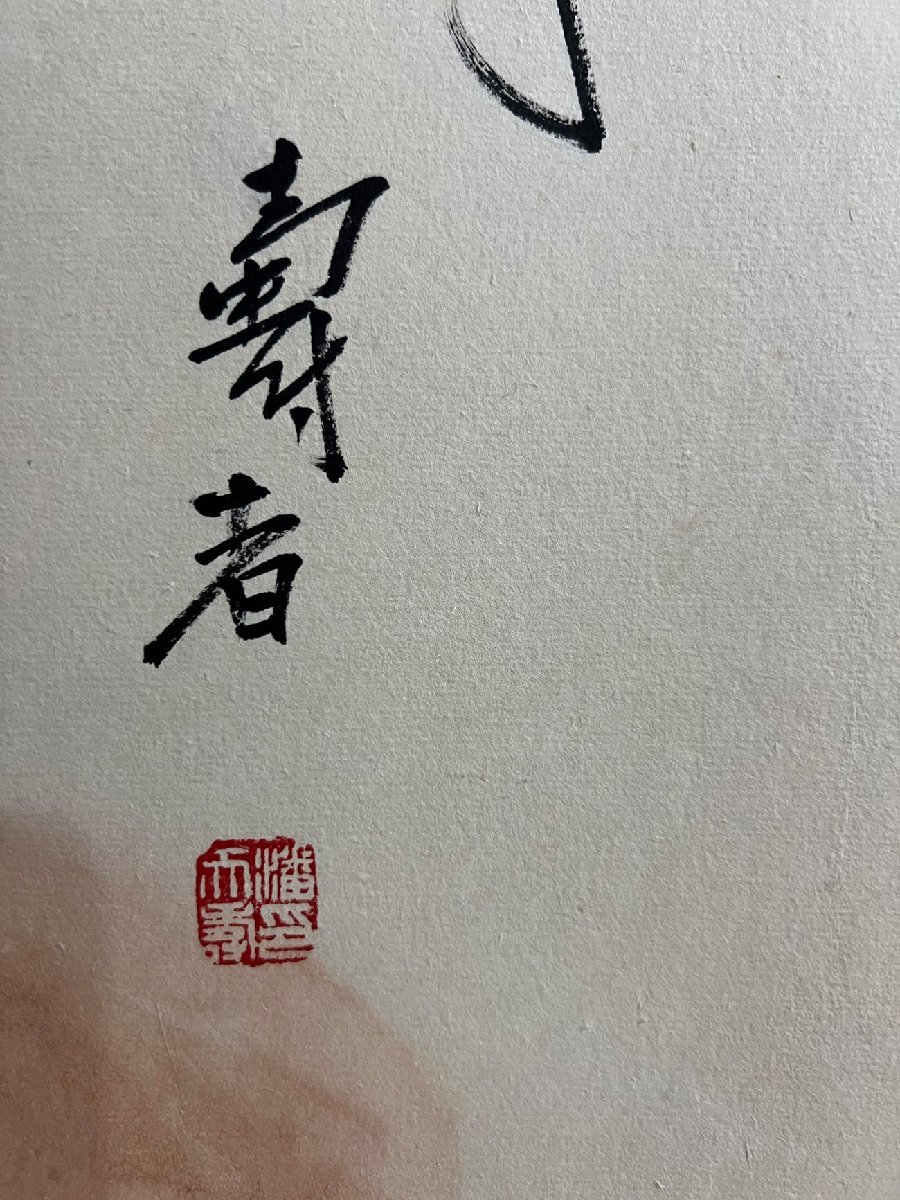 壽者
潘天壽印